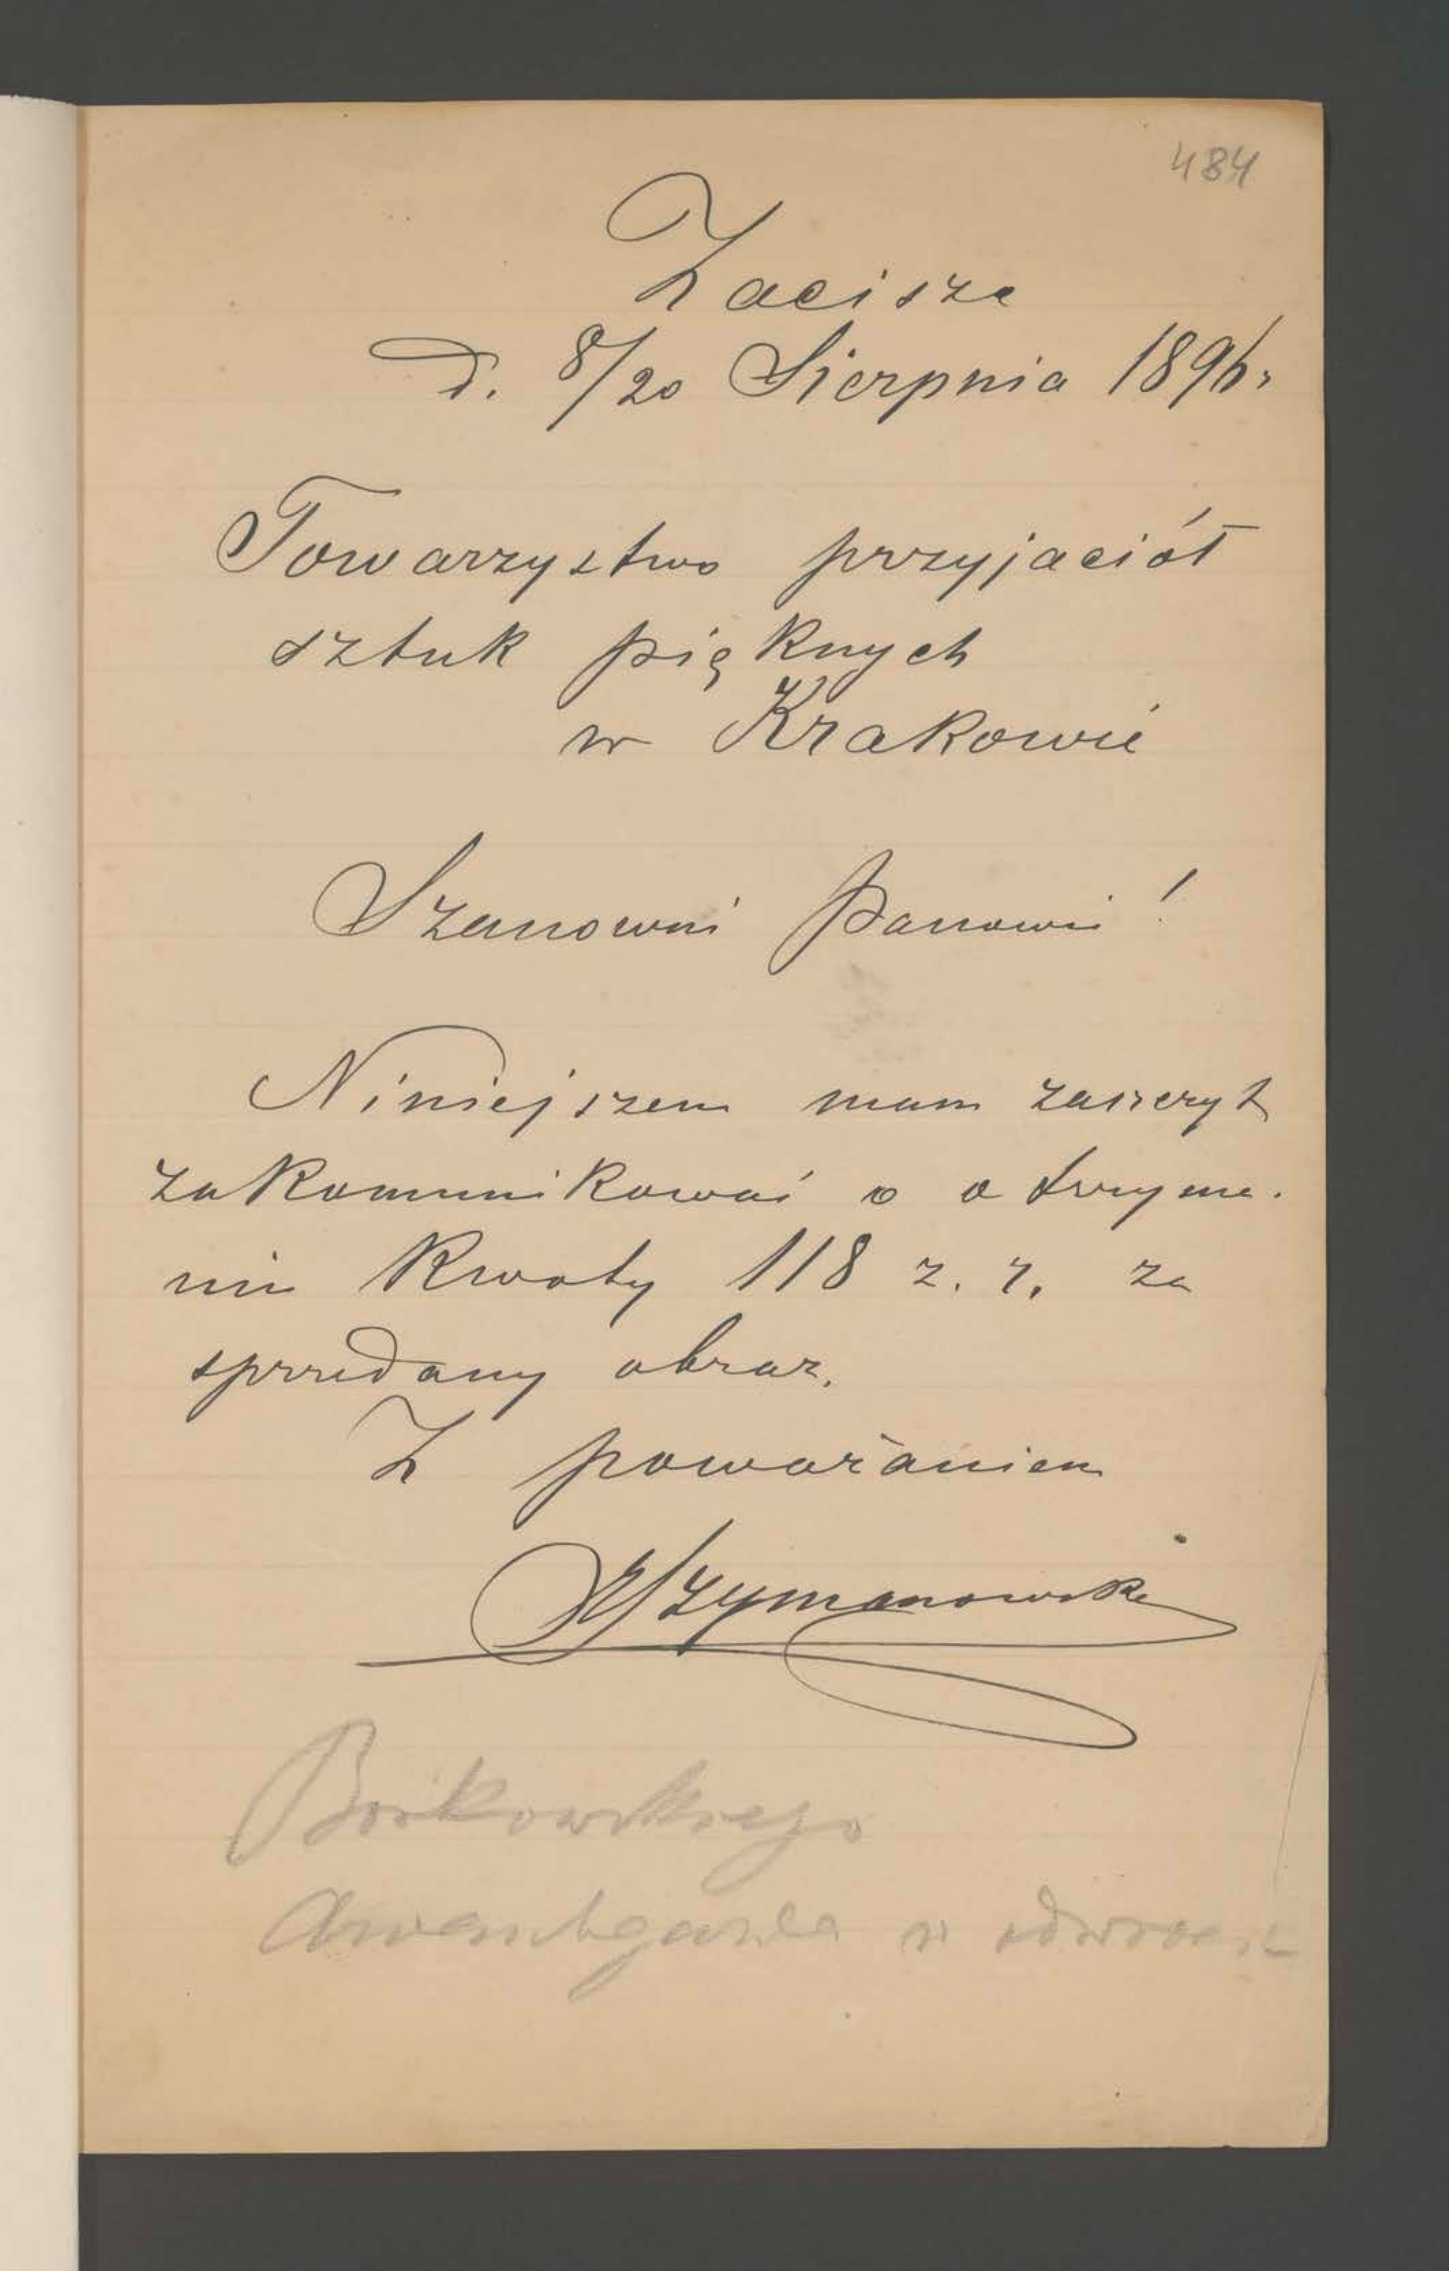 484
Zacisze
d. 8/20 Sierpnia 1896 r.
Towarzystwo przyjaciół
sztuk pięknych
w Krakowie
Szanowni Panowie!
Niniejszem mam zaszczyt
zakomunikować o otrzyma-
niu kwoty 118 z. r. za
sprzedany obraz.
Z poważaniem
Szymanowski
Borkowskiego
Awantgarda w odwrocie